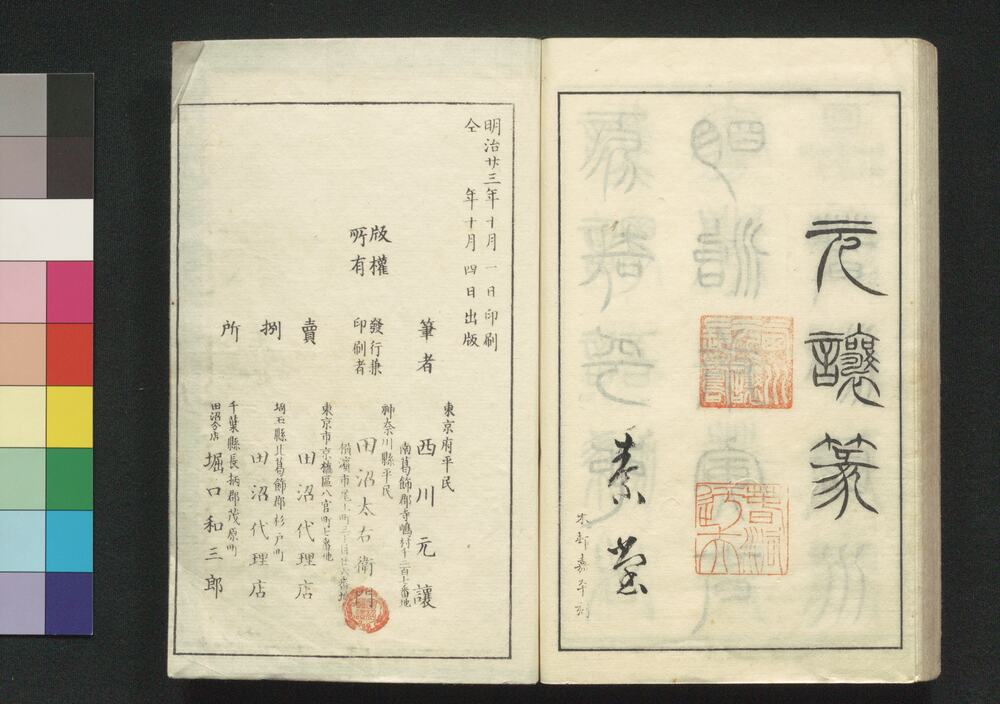 元讓篆
木邨嘉平刻
明治廿三年十月一日印刷
仝年十月四日出版
版權
所有
筆者
東京府平民
南葛飾郡寺嶋村千二百七番地
西川元讓
發行兼
印刷者
神奈川縣平民
橫濱市尾上町三丁目廿六番地
田沼太右衛門
賣
捌
所
東京市京橋區八官町七番地
田沼代理店
埼玉縣北葛飾郡杉戸町
田沼代理店
千葉縣長柄郡茂原町
田沼分店
堀口和三郎